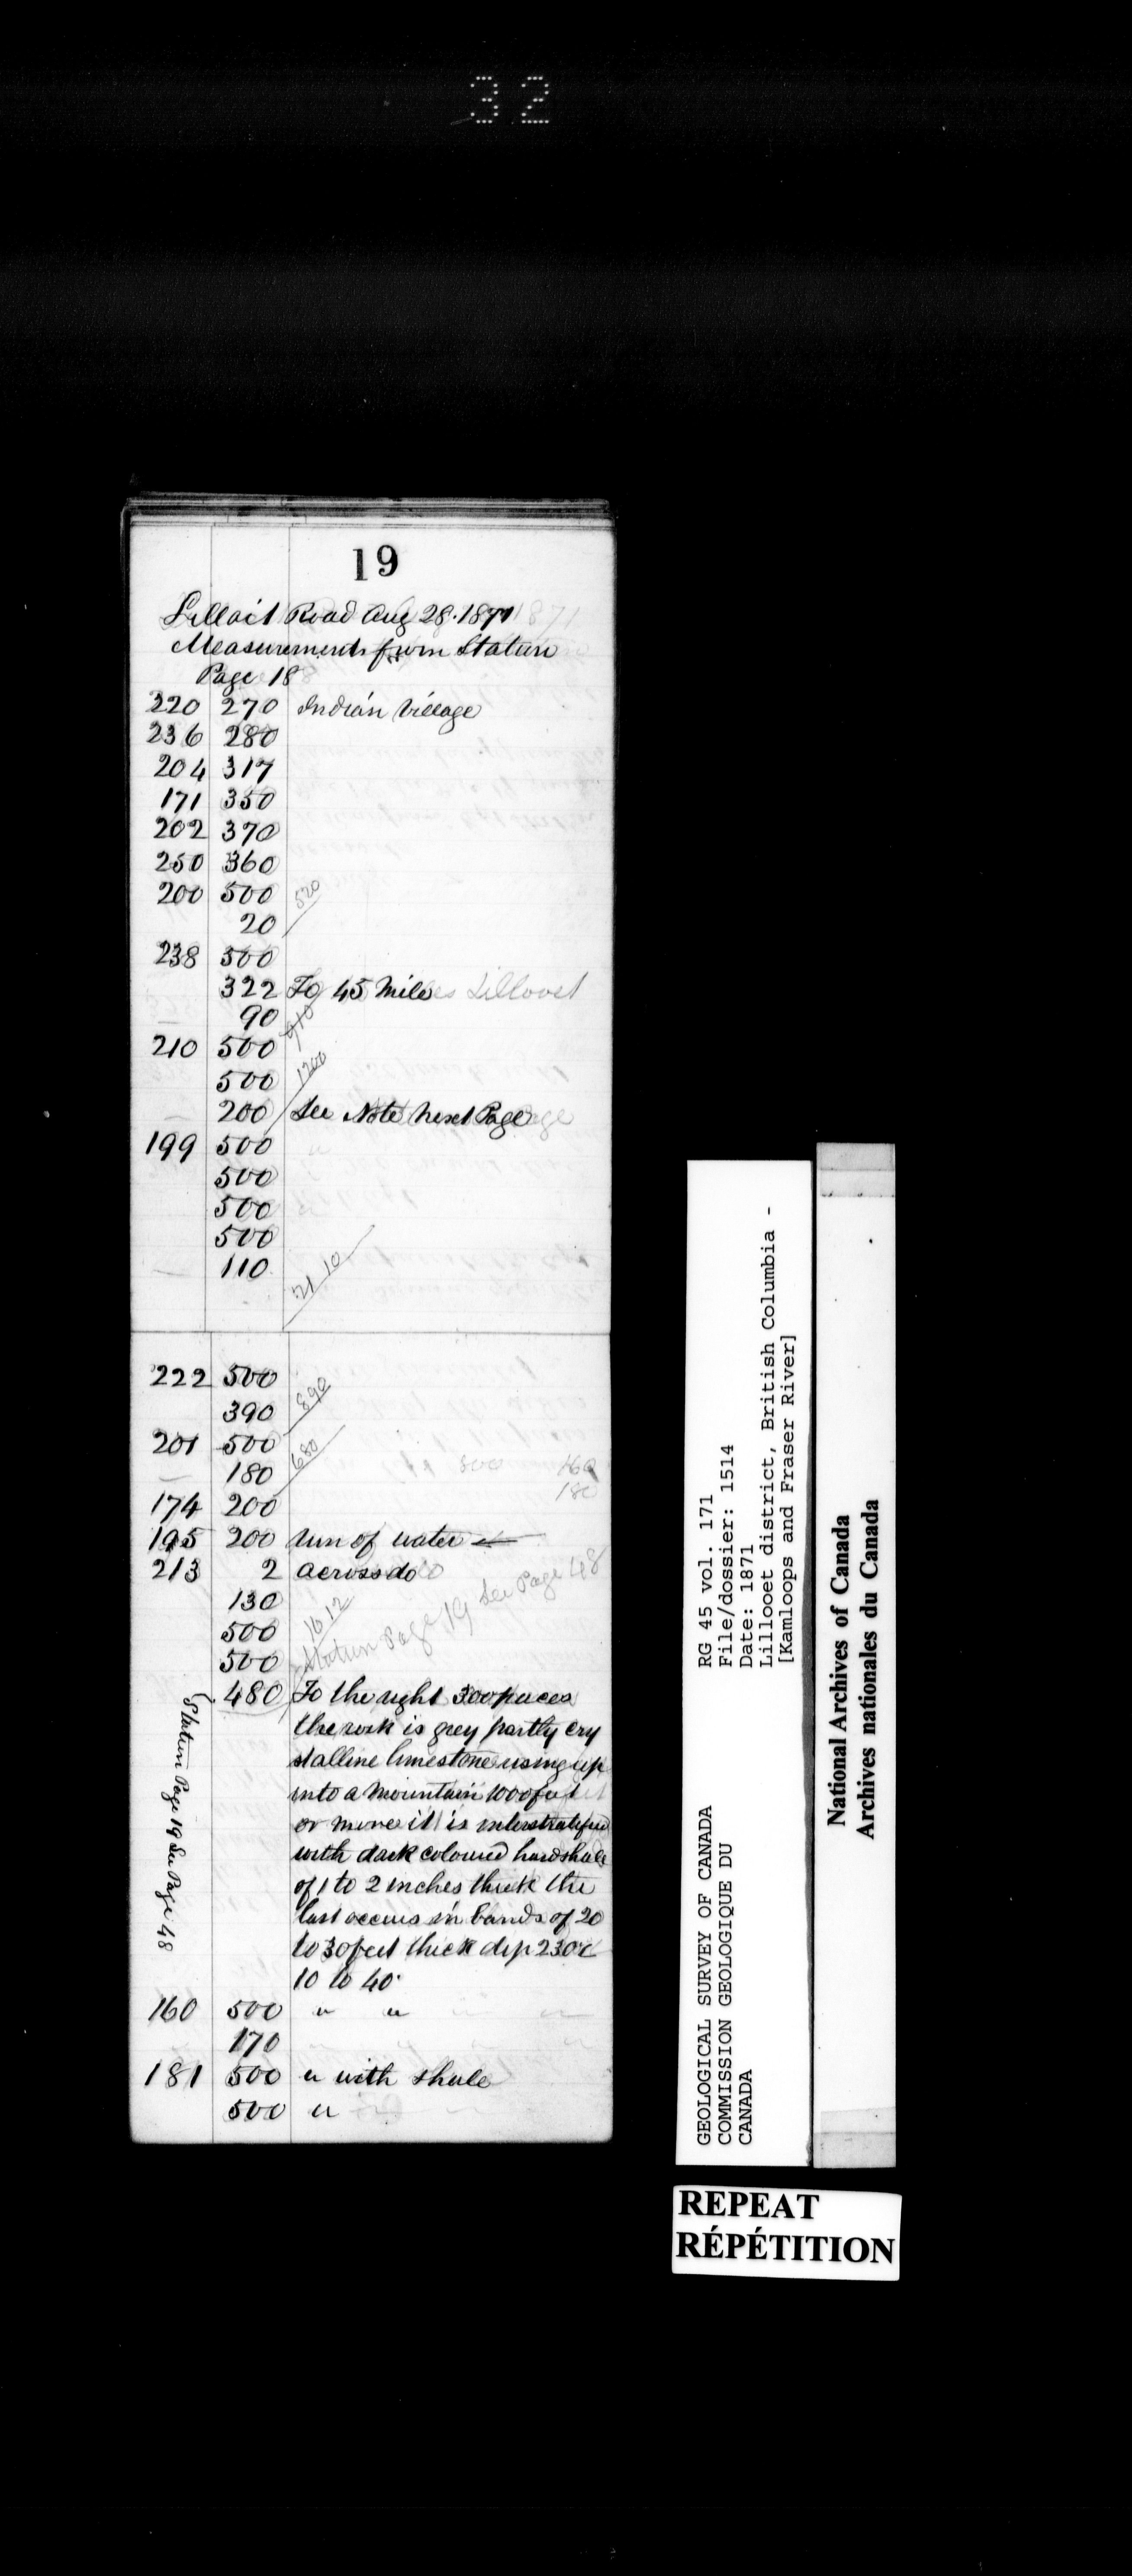 32
19
Lilloit Road Aug 28. 1871
Measurements from Station
Page 18
220 270 Indian Village
236 280
204 317
171 350
202 370
250 360
200 500 520
20
238 500
322 To 45 Miles Lillooet
90 910
210 500
500 1200
200 See Note Next Page
199 500
500
500
500
110 2110
222 500
390 890
201 500
180 680
174 200 180
195 200 run of water ←
213 2 across do
130
500 1612
500 Station Page 19 See Page 48
480 To the right 300 paces
the rock is grey partly cry
stalline limestone rising up
into a Mountain 1000 feet
or more it is interstratified
with dark coloured hard shale
of 1 to 2 inches thick the
last occurs in bands of 20
to 30 feet thick dip 230°
10 to 40°
Station Page 19 See Page 48
160 500 " "
170
181 500 " with shale
500 "
GEOLOGICAL SURVEY OF CANADA
COMMISSION GEOLOGIQUE DU
CANADA
RG 45 vol. 171
File/dossier: 1514
Date: 1871
Lillooet district, British Columbia -
[Kamloops and Fraser River]
National Archives of Canada
Archives nationales du Canada
REPEAT
RÉPÉTITION